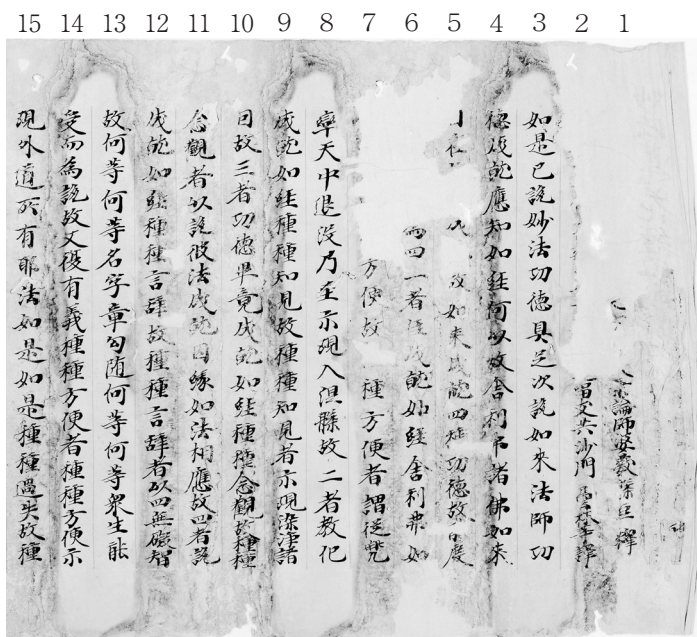 15 14 13 12 11 10 9 8 7 6 5 4 3 2 1
論師婆藪槃豆釋
留支共沙門曇林等譯
如是已說妙法功德具足次說如來法師功
德成就應知如經何以故舍利弗諸佛如來
成 故如來成就四種功德故 度
為四一者住成就如經舍利弗如
方便故 種方便者謂從兜
率天中退沒乃至示現入涅槃故二者教化
成就如經種種知見故種種知見者示現染淨諸
因故三者功德畢竟成就如經種種念觀故種種
念觀者以說彼法成就因緣如法相應故四者說
成就如經種種言辭故種種言辭者以四無礙智
故何等何等名字章句隨何等何等眾生能
受而為說故又復有義種種方便者種種方便示
現外道所有耶法如是如是種種過失故種